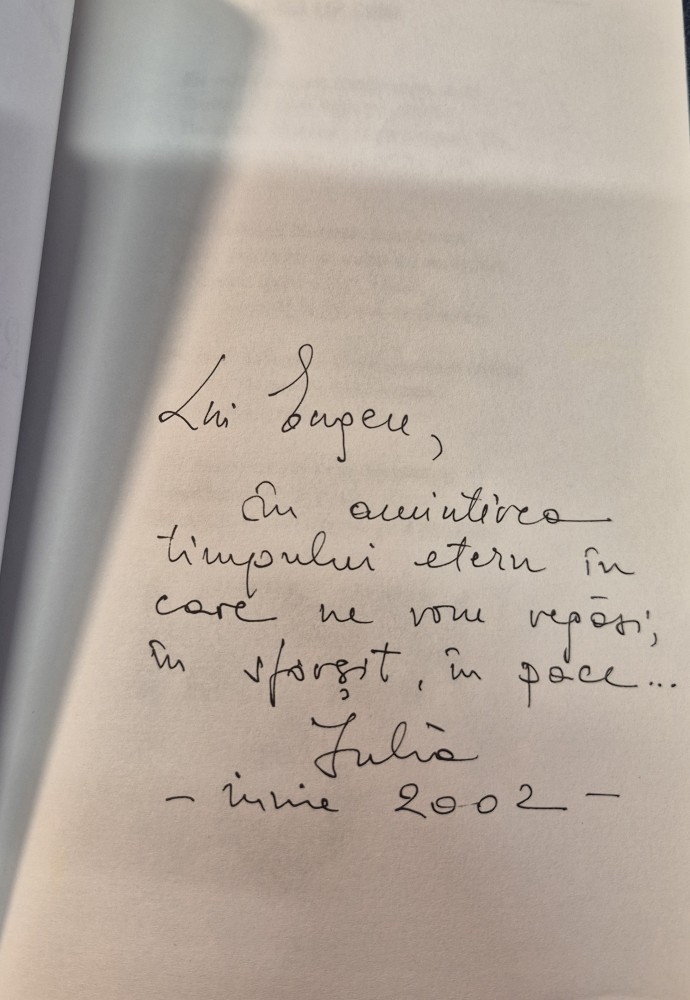 Lui Eugen,
În amintirea
timpului etern în
care ne vom regăsi,
în sfârşit, în pace...
Iulia
- iunie 2002 -